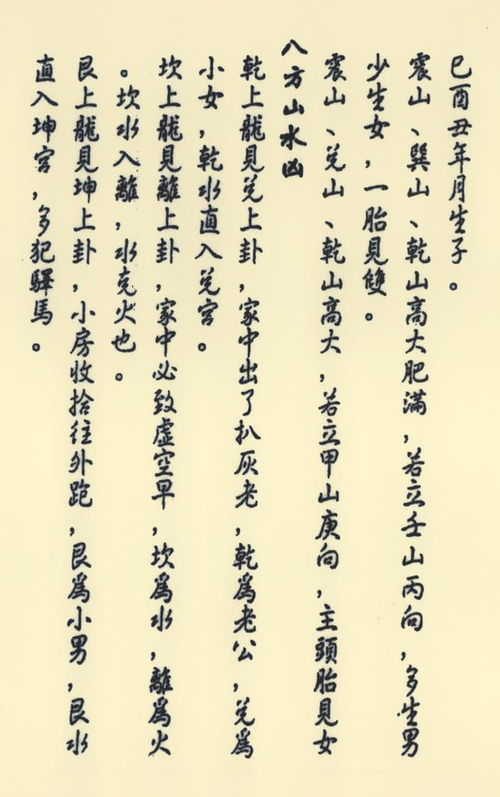 巳酉丑年月生子。
震山、巽山、乾山高大肥滿，若立壬山丙向，多生男
少生女，一胎見雙。
震山、兑山、乾山高大，若立甲山庚向，主頭胎見女
八方山水凶
乾上龍見兑上卦，家中出了扒灰老，乾為老公，兑為
小女，乾水直入兑宫。
坎上龍見離上卦，家中必致虛空早，坎為水，離為火
。坎水入離，水克火也。
艮上龍見坤上卦，小房收拾往外跑，艮為小男，艮水
直入坤宫，多犯驛馬。